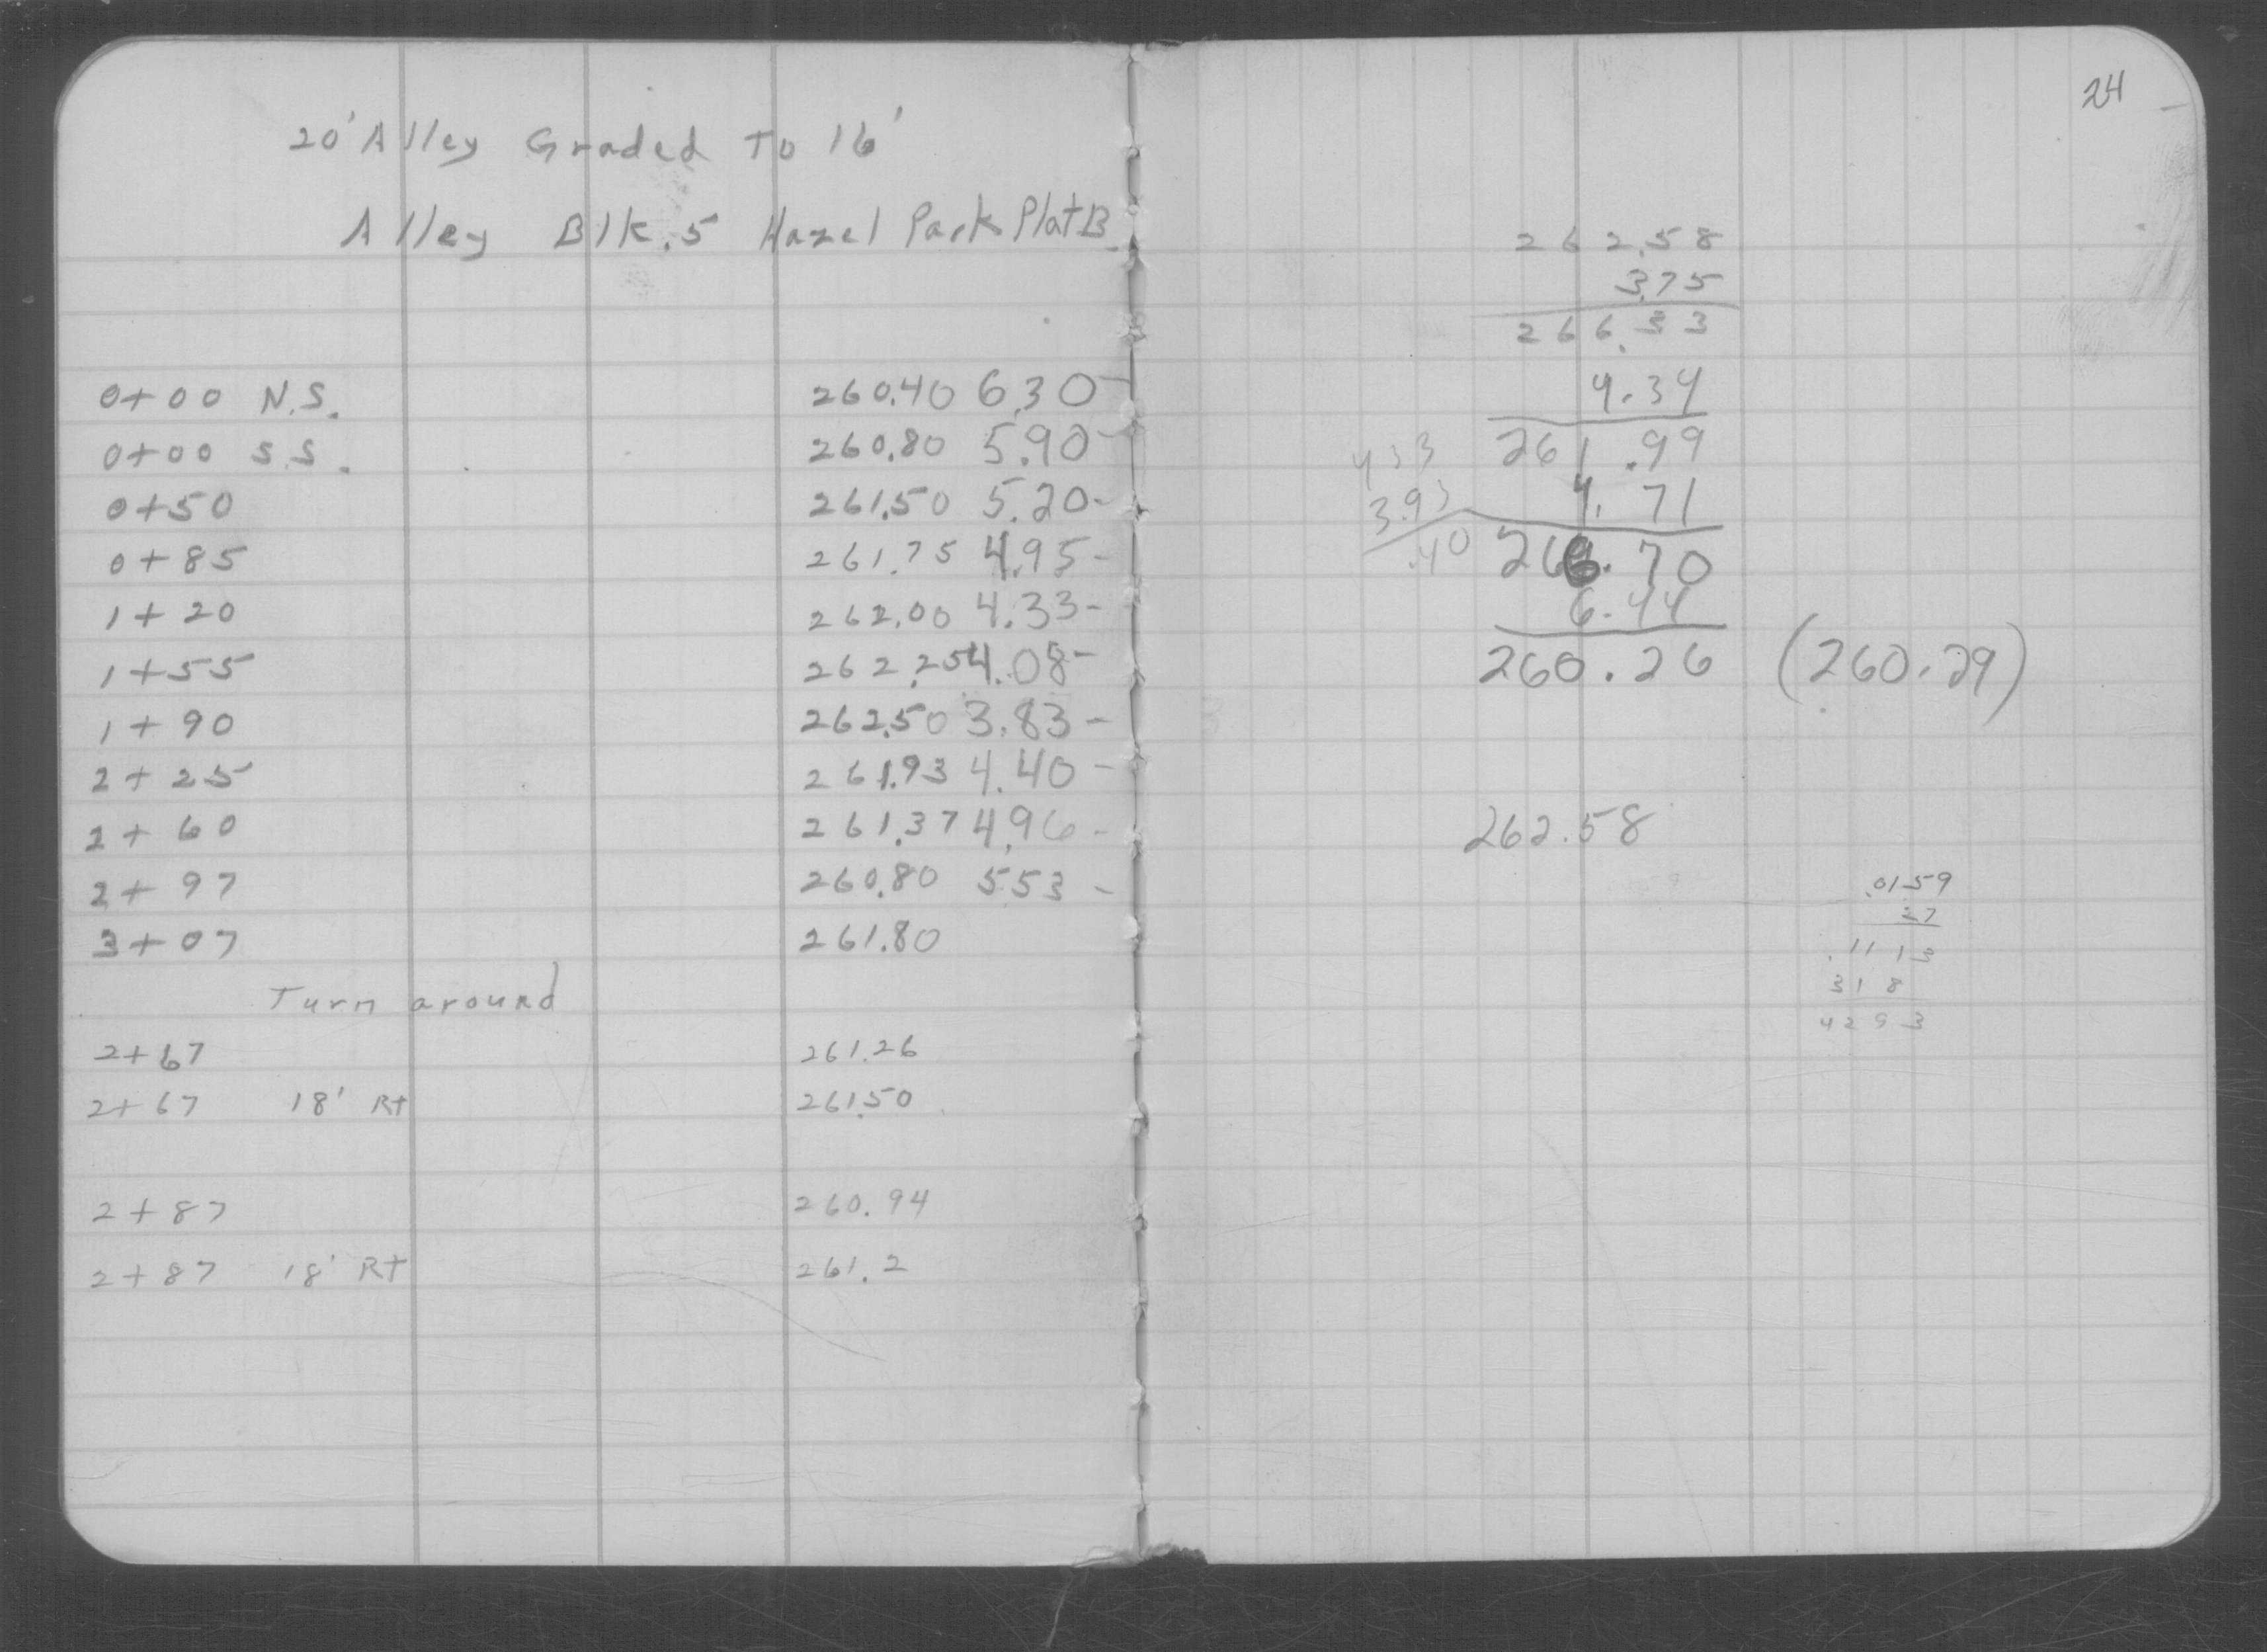 20' Alley Graded To 16'
Alley Blk. 5 Hazel Park Plat B
0+00 N.S. 260.40 6.30-
0+00 S.S. 260.80 5.90-
0+50 261.50 5.20-
0+85 261.75 4.95-
1+20 262.00 4.33-
1+55 262.25 4.08-
1+90 262.50 3.83-
2+25 261.93 4.40-
2+60 261.37 4.96-
2+97 260.80 5.53-
3+07 261.80
Turn around
2+67 261.26
2+67 18' Rt 261.50
2+87 260.94
2+87 18' Rt 261.2
24
262.58
3.75
266.33
4.34
261.99
4.71
266.70
6.44
260.26 (260.29)
4 33
3.93
.40
262.58
.0159
27
.1113
318
4293